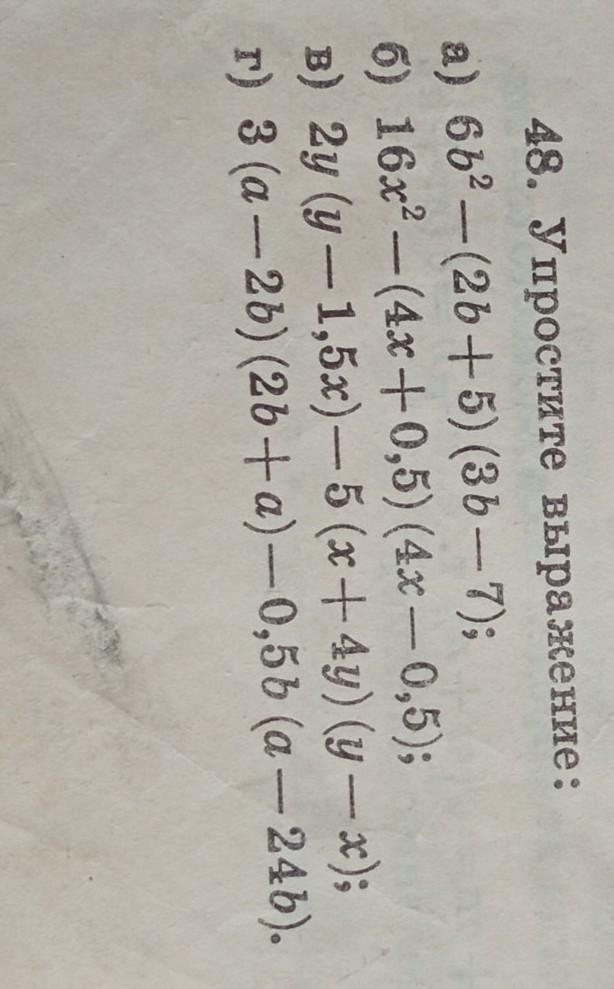 48. Упростите выражение:
а) 6b² — (2b + 5) (3b — 7);
б) 16x² — (4x + 0,5) (4x — 0,5);
в) 2y (y — 1,5x) — 5 (x + 4y) (y — x);
г) 3 (a — 2b) (2b + a) — 0,5b (a — 24b).